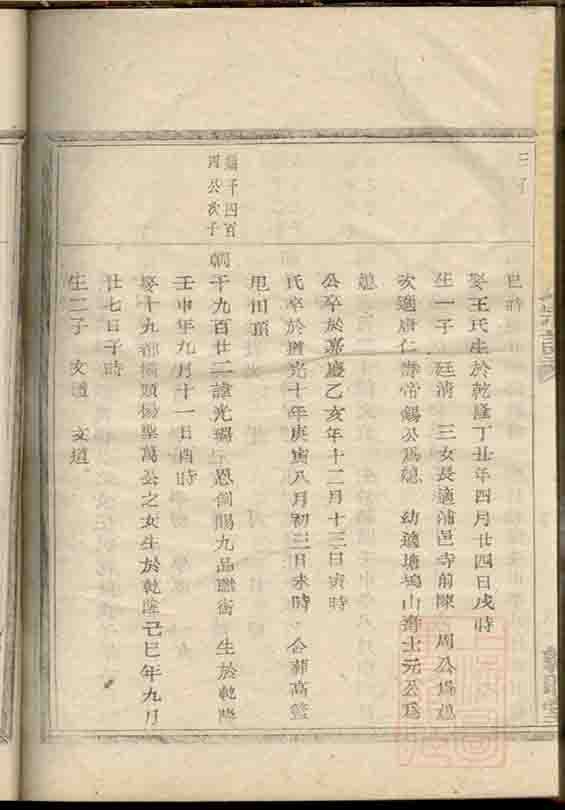 三子
巳時
娶王氏生於乾隆丁丑年四月廿四日戌時
生一子 廷清 三女長適浦邑寺前陳 周公為媳
次適唐仁壽帝錫公為媳 幼適塘塢山壽士元公為
媳
公卒於嘉慶乙亥年十二月十三日寅時
氏卒於道光十年庚寅八月初三日未時 公葬高籃
甩田頂
朝千九百廿二諱光 恩例賜九品職銜 生於乾隆
四公次子
壬申年九月十一日酉時
娶十九都楊頭楊聖萬公之女生於乾隆己巳年九月
廿七日子時
生二子 文 文道